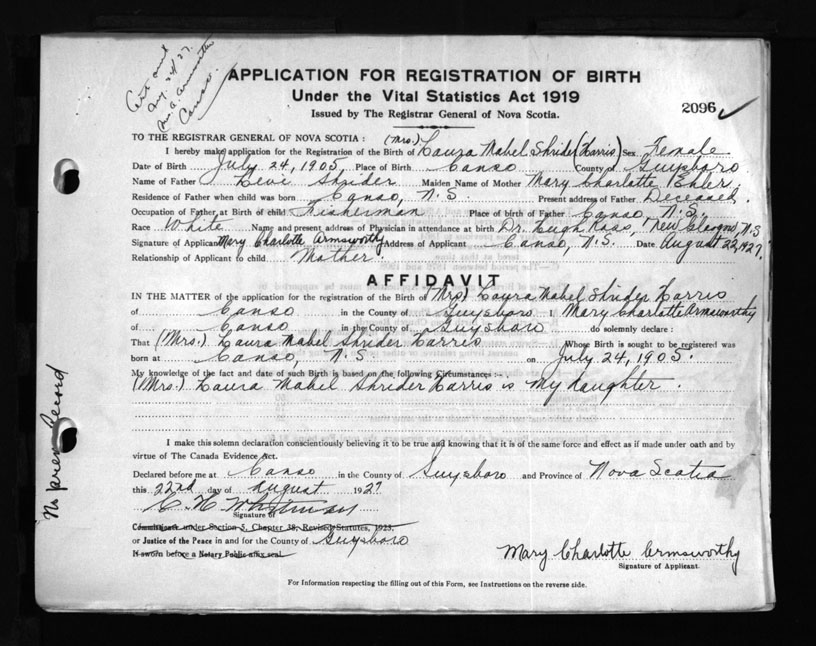 Cert and
Aug. 24/27.
Canso.
APPLICATION FOR REGISTRATION OF BIRTH
Under the Vital Statistics Act 1919
Issued by The Registrar General of Nova Scotia.
2096
TO THE REGISTRAR GENERAL OF NOVA SCOTIA : (Mrs.)
I hereby make application for the Registration of the Birth of Laura Mabel Shrider (Harris) Sex Female
Date of Birth July 24, 1905, Place of Birth Canso County of Guysboro
Name of Father Levi Shrider Maiden Name of Mother Mary Charlotte Ehler.
Residence of Father when child was born Canso, N.S. Present address of Father Deceased.
Occupation of Father at Birth of child Fisherman Place of birth of Father Canso, N.S.
Race White Name and present address of Physician in attendance at birth Dr. Hugh Ross, New Glasgow, N.S
Signature of Applicant Mary Charlotte Armsworthy Address of Applicant Canso, N.S. Date August 22, 1927.
Relationship of Applicant to child Mother.
AFFIDAVIT
IN THE MATTER of the application for the registration of the Birth of (Mrs) Laura Mabel Shrider Harris
of Canso in the County of Guysboro I, Mary Charlotte Armsworthy
of Canso in the County of Guysboro do solemnly declare :
That (Mrs.) Laura Mabel Shrider Harris Whose Birth is sought to be registered was
born at Canso, N.S. on July 24, 1905.
My knowledge of the fact and date of such Birth is based on the following Circumstances :-
(Mrs.) Laura Mabel Shrider Harris is my daughter.
I make this solemn declaration conscientiously believing it to be true and knowing that it is of the same force and effect as if made under oath and by
virtue of The Canada Evidence Act.
Declared before me at Canso in the County of Guysboro and Province of Nova Scotia
this 22nd day of August 1927
C. H. Whitman
Signature of
Commissioner under Section 5, Chapter 38, Revised Statutes, 1923.
or Justice of the Peace in and for the County of Guysboro
If sworn before a Notary Public affix seal.
Mary Charlotte Armsworthy
Signature of Applicant.
For Information respecting the filling out of this Form, see Instructions on the reverse side.
No prev Record